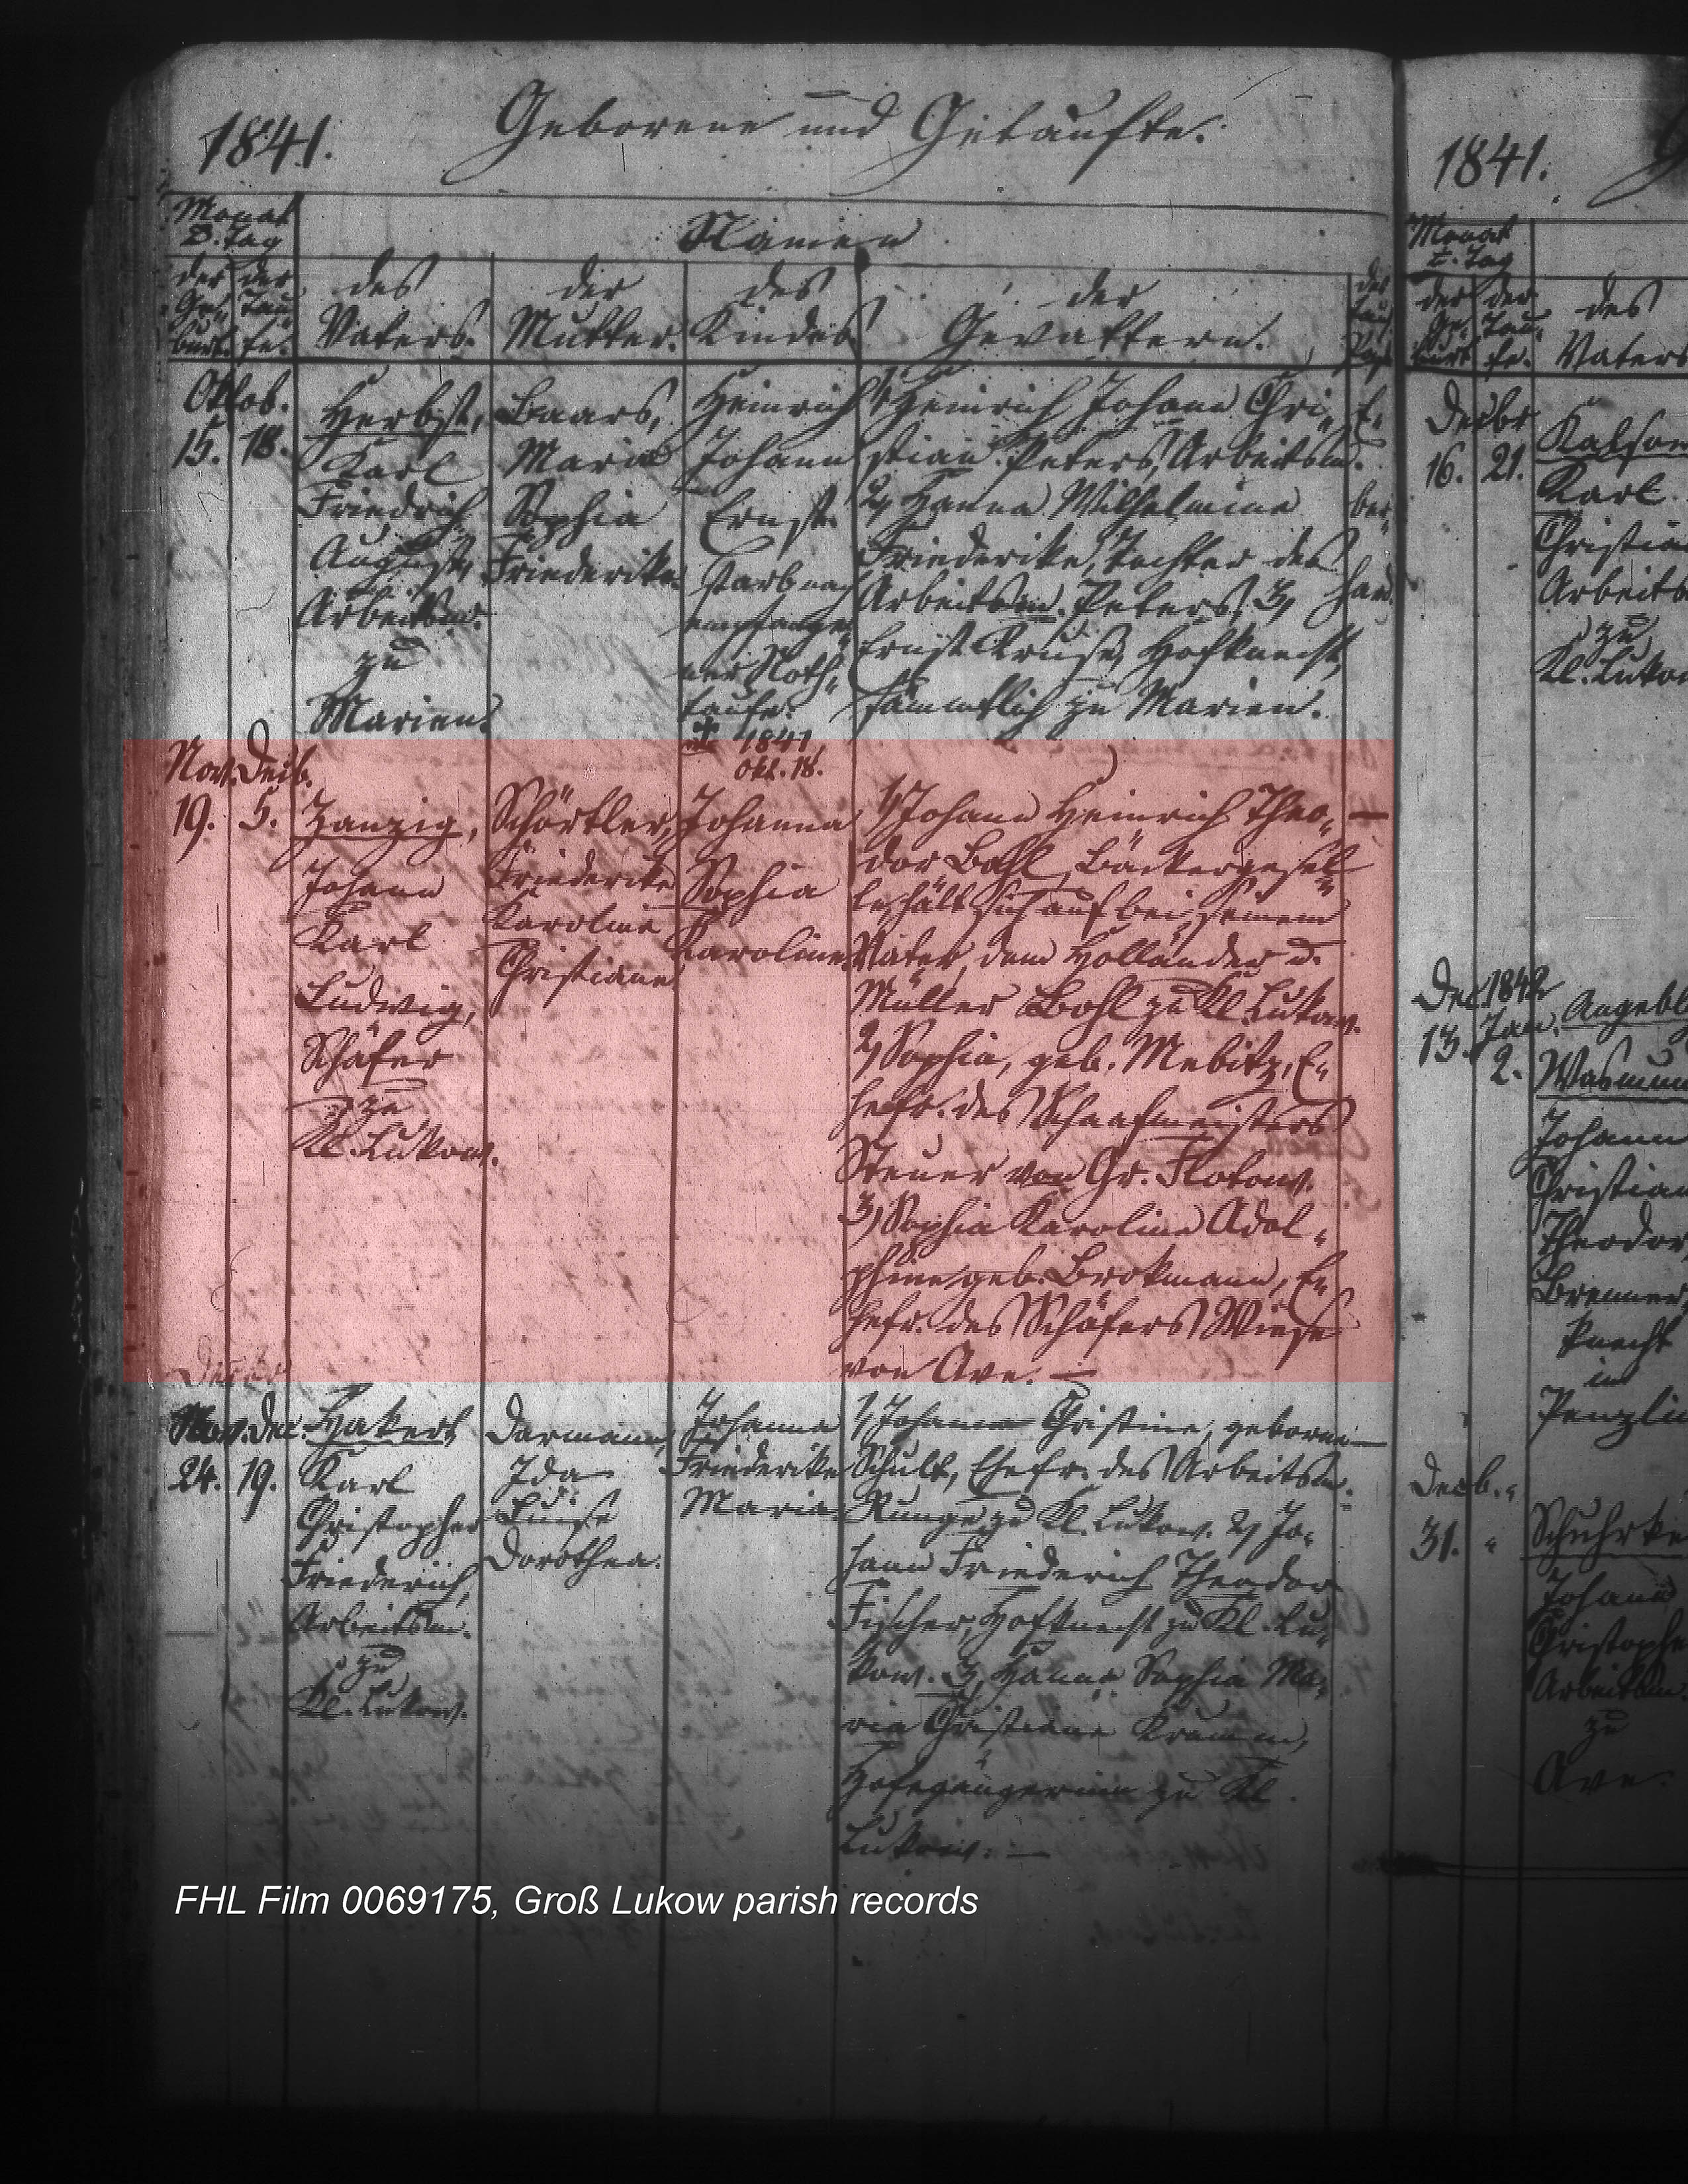 1841.
Geborene und Getaufte.
Monat
u. Tag
Namen
der Ge-
burt.
der Tau-
fe.
des
Vaters.
der
Mutter.
des
Kindes.
der
Gevattern.
der
Oktob.
15. 18.
Herbst,
Karl
Friedrich
August,
Arbeitsm.
zu
Marien.
Baars,
Maria
Sophia
Friederike.
Heinrich
Johann
Ernst.
starb nach
empfange-
ner Noth-
taufe.
† 1841,
Okt. 18.
1, Heinrich Johann Chri-
stian Peters, Arbeitsm.
2, Hanna Wilhelmine
Friederike, Tochter des
Arbeitsm. Peters, 3,
Ernst Kruse, Hofknecht,
sämmtlich zu Marien.
Nov. Decb.
19. 5.
Zanzig,
Johann
Karl
Ludwig,
Schäfer
zu
Kl. Lukow.
Schörtler,
Friederike
Karoline
Christiane
Johanna
Sophia
Karoline.
1, Johann Heinrich Theo-
dor Bohl, Bäckergesel-
le, hält sich auf bei seinem
Vater, dem Holländer u.
Müller Bohl zu Kl. Lukow.
2, Sophia, geb. Mebitz, E-
hefr. des Schaafmeisters
Steuer von Gr. Flotow.
3, Sophia Karoline Adol-
phine geb. Brokmann, E-
hefr. des Schäfers Wiese
von Ave. —
Nov. Dec.
24. 19.
Hakert
Karl
Christopher
Friederich,
Arbeitsm.
zu
Kl. Lukow.
Darmann,
Ida
Luise
Dorothea.
Johanna
Friederike
Maria.
1, Johanna Christine, geborne
Schult, Ehefr. des Arbeitsm.
Runge zu Kl. Lukow. 2, Jo-
hann Friederich Theodor
Fischer, Hofknecht zu Kl. Lu-
kow. 3, Hanna Sophia Ma-
ria Christiane Kramm,
Hofegängerinn zu Kl.
Lukow. —
1841.
Monat
u. Tag
der Ge-
burt
der Tau-
fe.
des
Vaters
Decbr
16. 21.
Karl
Christian
Arbeits
zu
Kl. Lukow
Dec. 1842
13. Jan.
2.
Angebl
Johann
Christian
Theodor,
Brenner,
knecht
in
Penzlin
Decb.
31. "
Johann
Christophe
Arbeitsm.
zu
Ave.
FHL Film 0069175, Groß Lukow parish records